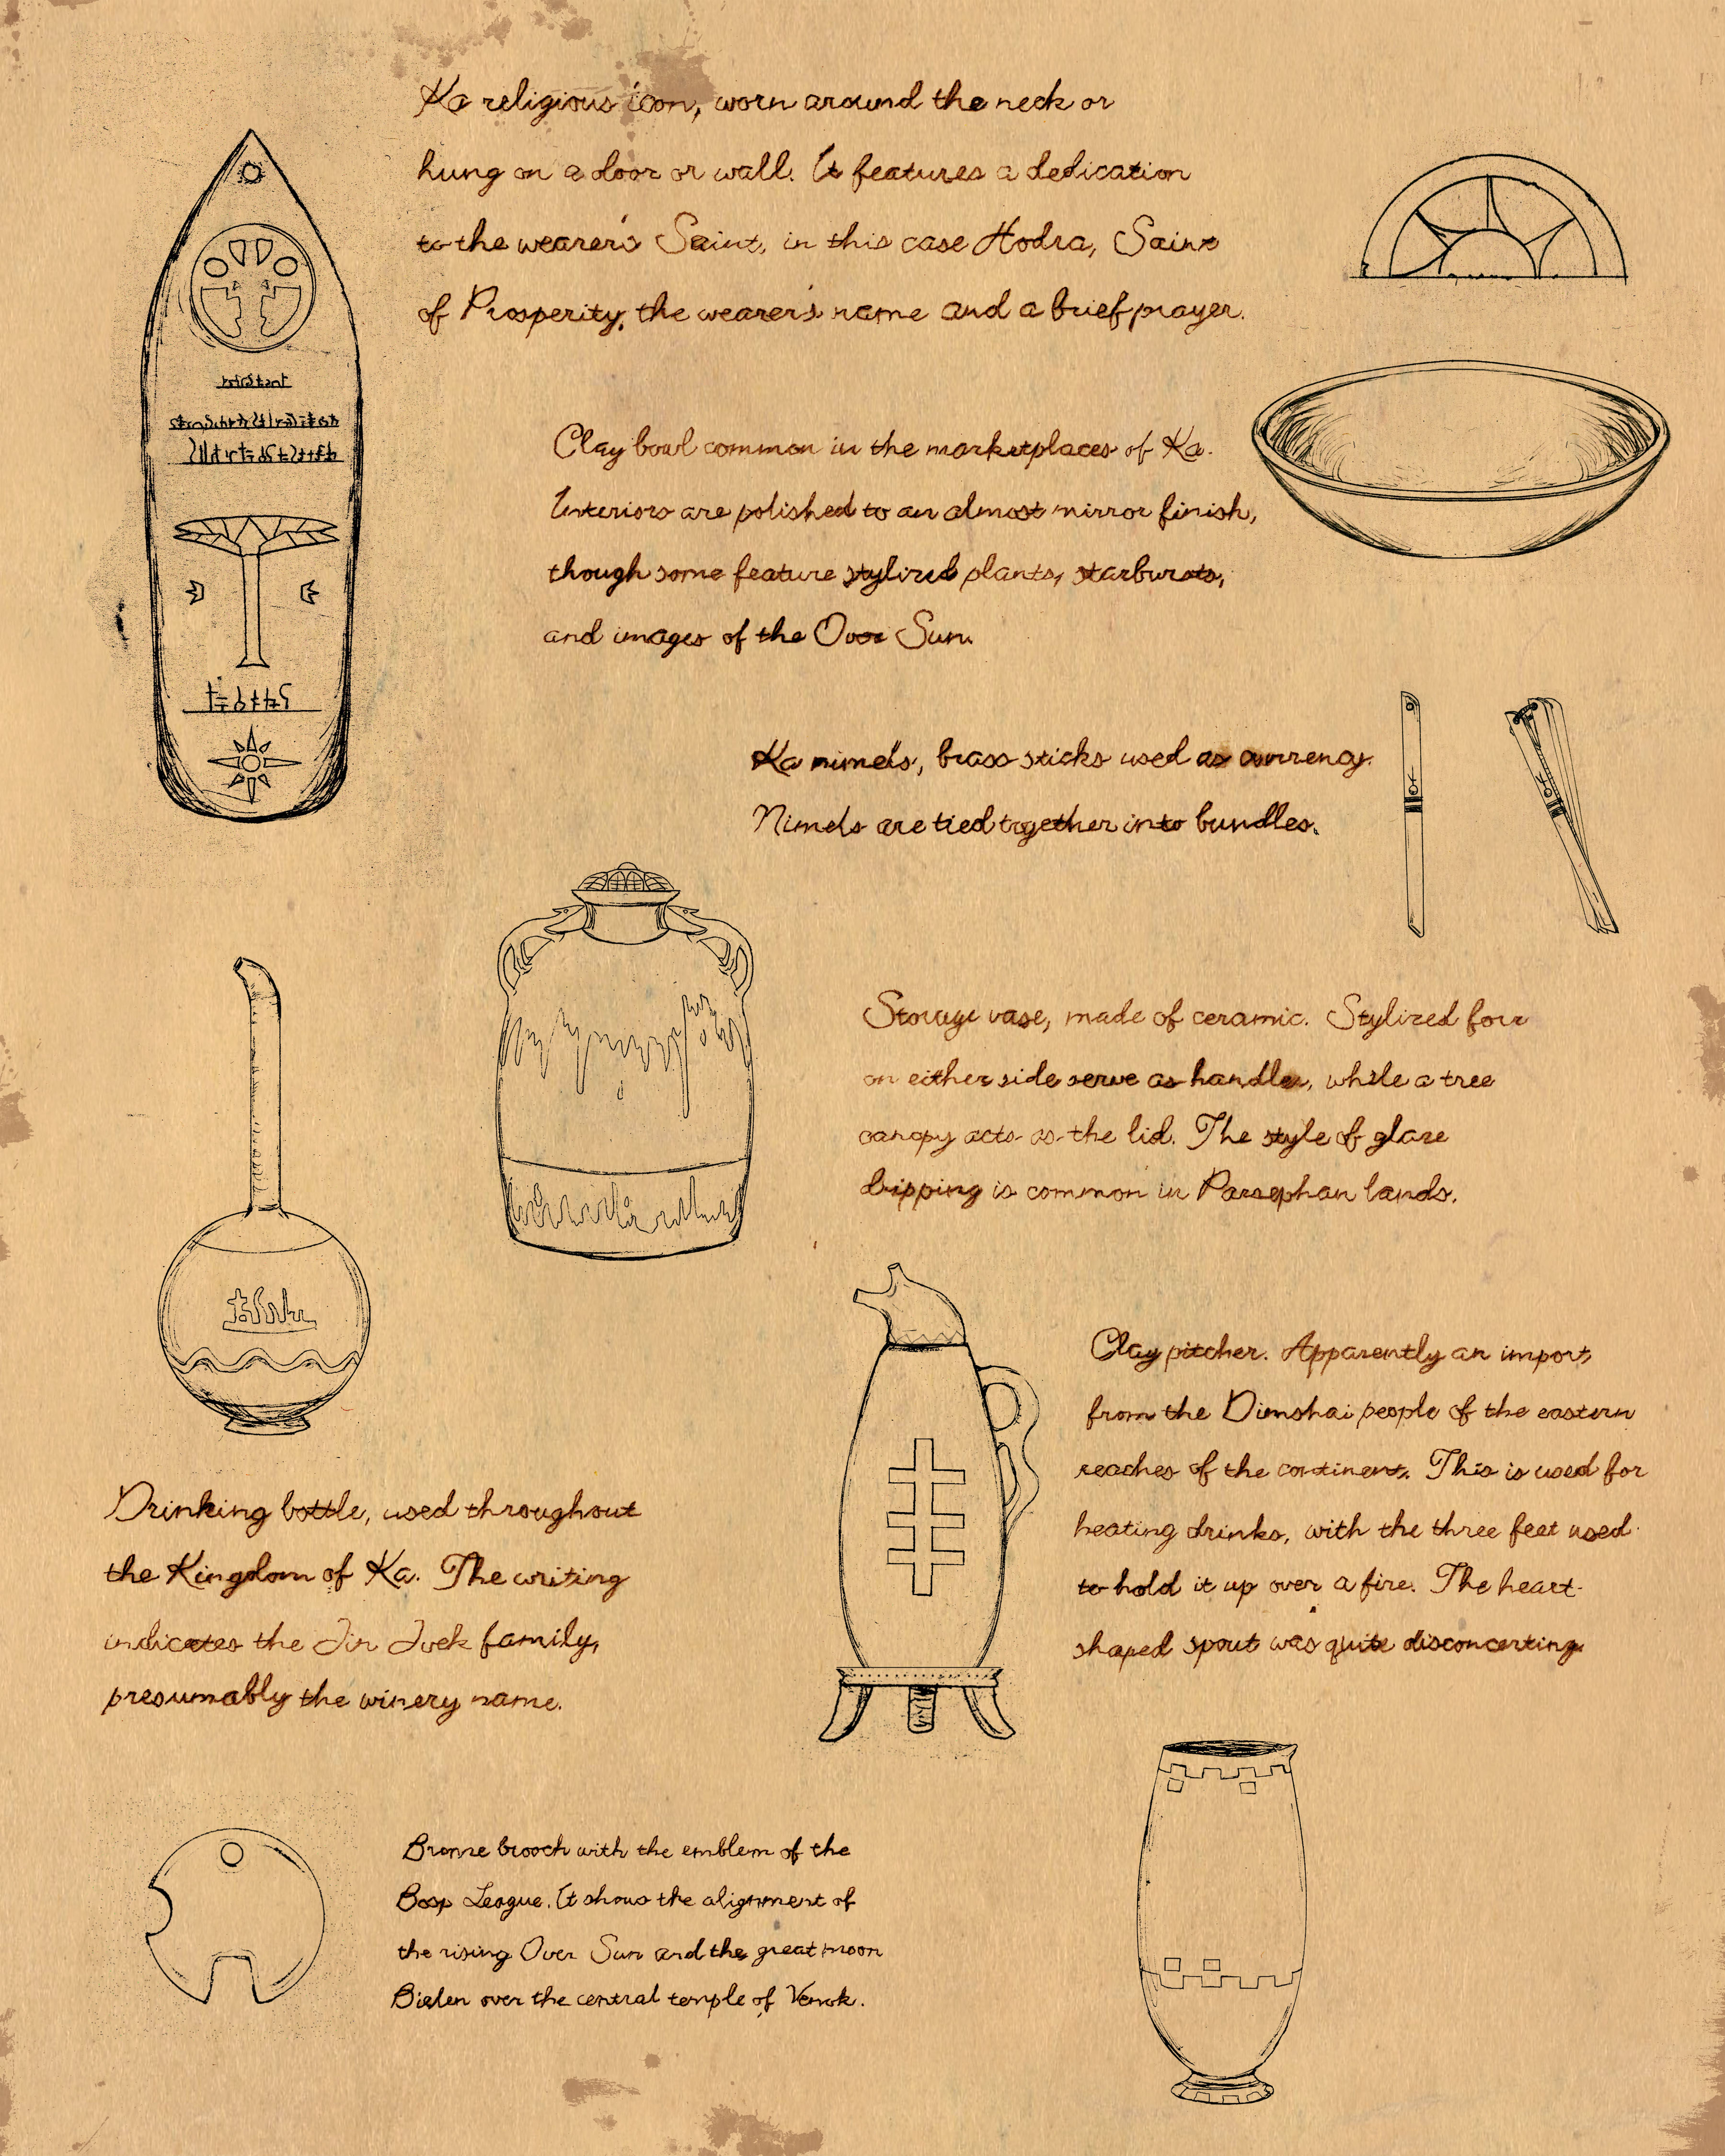 Ka religious icon, worn around the neck or
hung on a door or wall. It features a dedication
to the wearer's Saint, in this case Hodra, Saint
of Prosperity, the wearer's name and a brief prayer.
Clay bowl common in the marketplaces of Ka.
Interiors are polished to an almost mirror finish,
though some feature stylized plants, starbursts,
and images of the Over Sun.
Ka nimels, brass sticks used as currency.
Nimels are tied together into bundles.
Storage vase, made of ceramic. Stylized
on either side serve as handles, while a tree
canopy acts as the lid. The style of glaze
dripping is common in Parsephan lands.
Clay pitcher. Apparently an import
from the Dimshai people of the eastern
reaches of the continent. This is used for
heating drinks, with the three feet used
to hold it up over a fire. The heart-
shaped spout was quite disconcerting.
Drinking bottle, used throughout
the Kingdom of Ka. The writing
indicates the family,
presumably the winery name.
Bronze brooch with the emblem of the
League. It shows the alignment of
the rising Over Sun and the great moon
over the central temple of